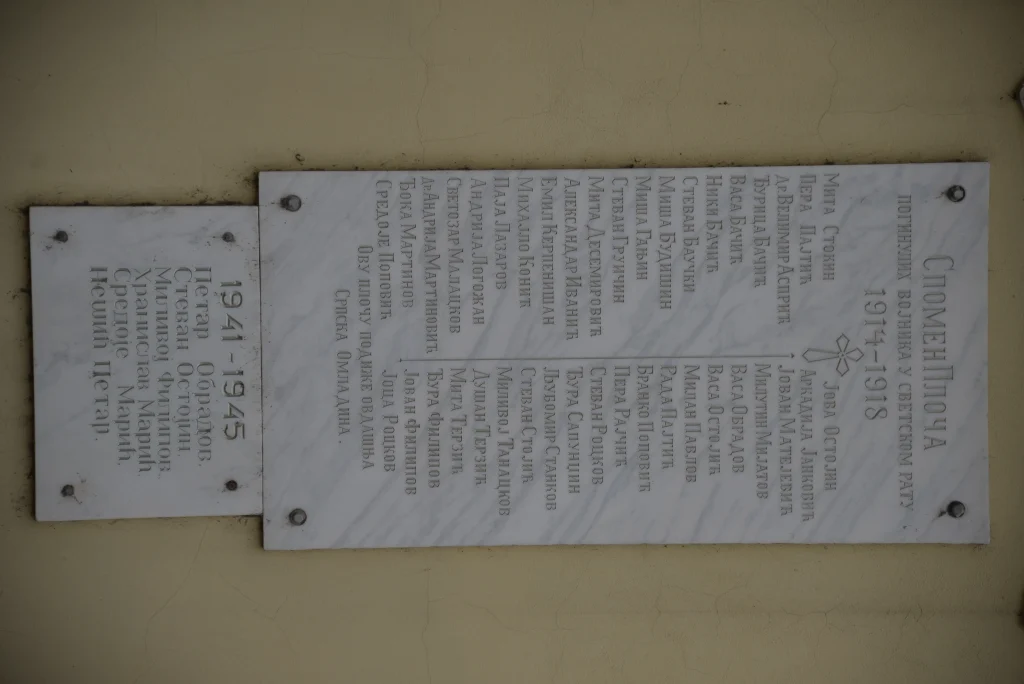 СПОМЕН ПЛОЧА
ПОГИНУЛИХ ВОЈНИКА У СВЕТСКОМ РАТУ
1914-1918
МИТА СТОКИН
ПЕРА ПАЈТИЋ
ДР ВЕЛИМИР АСИРИЋ
ЂУРИЦА БАЧИЋ
ВАСА БАЧИЋ
НИКИ БАЧИЋ
СТЕВАН БАУЧКИ
МИША БУДИШИН
МИША ГАЉИН
СТЕВАН ГРУИЧИН
МИТА ДЕСЕМИРОВИЋ
АЛЕКСАНДАР ИВАНИЋ
ЕМИЛ КЕРПЕНИШАН
МИХАЈЛО КОНИЋ
ПАЈА ЛАЗАРОВ
АНДРИЈА ЛОГОЖАН
СВЕТОЗАР МАЛАЦКОВ
ДР АНДРИЈА МАРТИНОВИЋ
ЂОКА МАРТИНОВ
СРЕДОЈЕ ПОПОВИЋ
ЈОВА ОСТОЈИН
АРКАДИЈА ЈАНКОВИЋ
ЈОВАН МАТЕЈЕВИЋ
МИЛУТИН МИЈАТОВ
ВАСА ОБРАДОВ
ВАСА ОСТОЈИЋ
МИЛАН ПАВЛОВ
РАДА ПАЈТИЋ
БРАНКО ПОПОВИЋ
ПЕРА РАЈЧИЋ
СТЕВАН РОЦКОВ
ЂУРА САПУНЏИН
ЉУБОМИР СТАНКОВ
СТЕВАН СТОЈИЋ
МИЛИВОЈ ТАНАЦКОВ
ДУШАН ТЕРЗИЋ
МИТА ТЕРЗИЋ
ЂУРА ФИЛИПОВ
ЈОВАН ФИЛИПОВ
ЈОЦА РОЦКОВ
ОВУ ПЛОЧУ ПОДИЖЕ ОВДАШЊА
СРПСКА ОМЛАДИНА.
1941-1945
Петар Обрадов,
Стеван Остојин,
Миливој Филипов,
Хранислав Марић
Средоје Марић,
Нешић Петар.